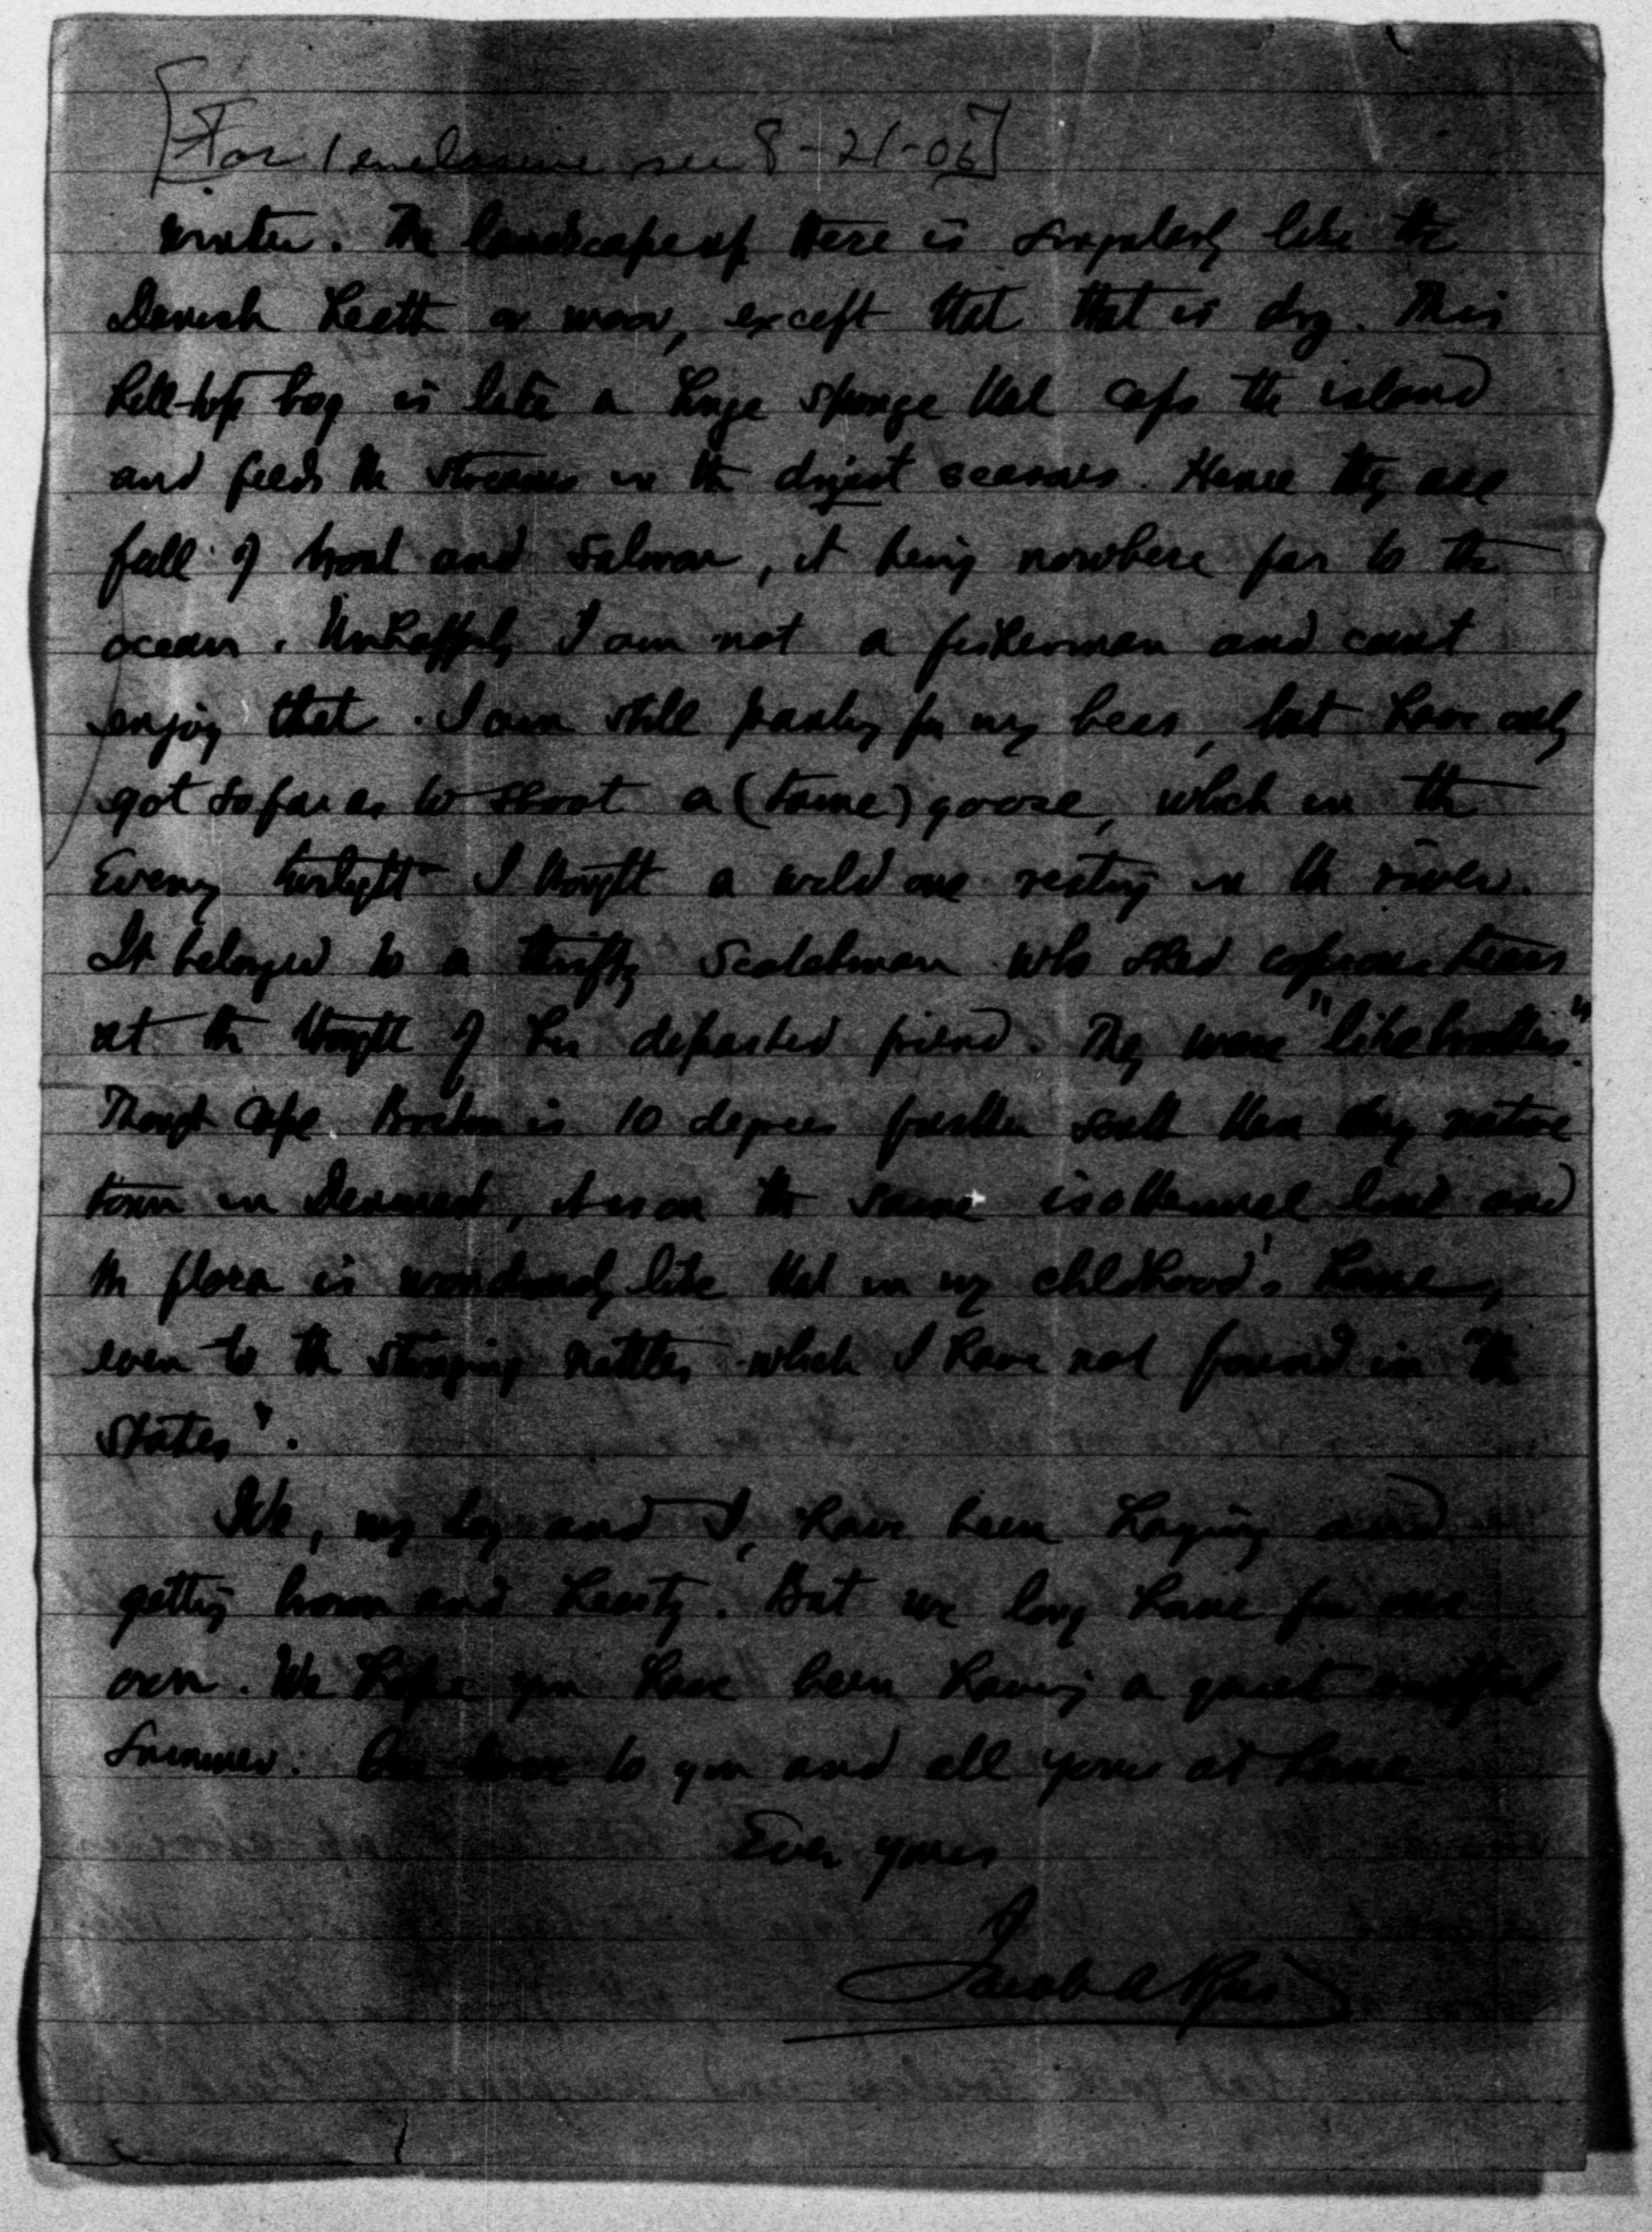 [For 1 enclosure see 8-21-06]
winter. The landscape up here is singularly like the
Danish heath or moor, except that that is dry. This
hill-top bog is like a huge sponge that caps the island
and feeds the streams in the dryest seasons. Hence they are
full of trout and salmon, it being nowhere far to the
ocean. Unhappily I am not a fisherman and cant
enjoy that. I am still for my bear, but have only
got so far as to shoot a (tame) goose, which in the
Evening twilight I thought a wild one resting in the river.
It belonged to a thrifty Scotchman who shed copious tears
at the thought of his departed friend. They were "like brothers".
Though Cape Breton is 10 degrees further south than my native
town in Denmark, it is on the same isothermal line and
the flora is wondrously like that in my childhood's home,
even to the stinging nettles which I have not found in "the
States".
Ike, my boy and I, have been haying and
getting brown and hearty. But we long home for our
own. We hope you have been having a quiet restful
summer. Our love to you and all yours at home
Ever yours
Jacob A Riis